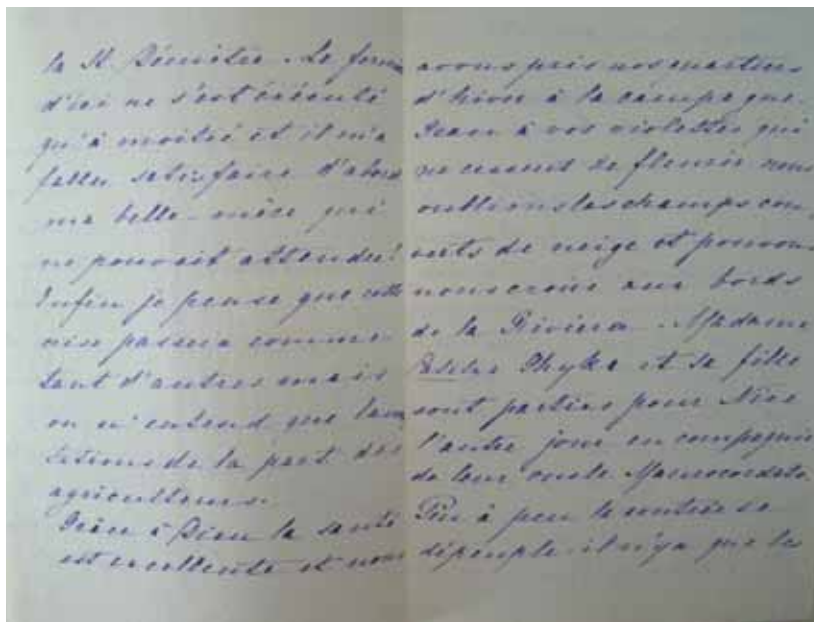 la St Démètre. Le ferm
d'ici ne s'est exécuté
qu'à moitié et il m'a
fallu satisfaire d'abord
ma belle-mère qui
ne pouvait attendre!
Enfin je pense que cette
crise passera comme
tant d'autres mais
on n'entend que lamen
tations de la part des
agriculteurs.
Grâce à Dieu la santé
est excellente et nous
avons pris nos quartiers
d'hiver à la campagne.
Grâce à vos violettes qui
ne cessent de fleurir nous
oublions les champs cou
verts de neige et pouvons
nous croire aux bords
de la Riviera. Madame
Rhyka et sa fille
sont parties pour Nice
l'autre jour en compagnie
de leur oncle Mavrocordato.
Peu à peu la contrée se
dépeuple il n'y a que les